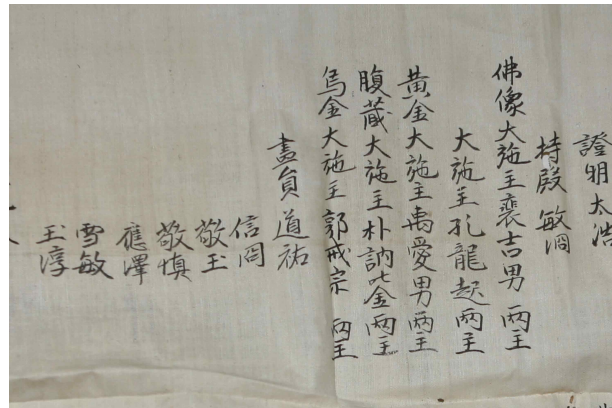 證明太浩
持殿 敏冏
佛像大施主裵吉男 兩主
大施主孔龍起兩主
黃金大施主禹愛男兩主
腹藏大施主朴訥叱金兩主
烏金大施主郭戒宗 兩主
畵員 道祐
信冏
敬玉
敬愼
應澤
雪敏
玉淳